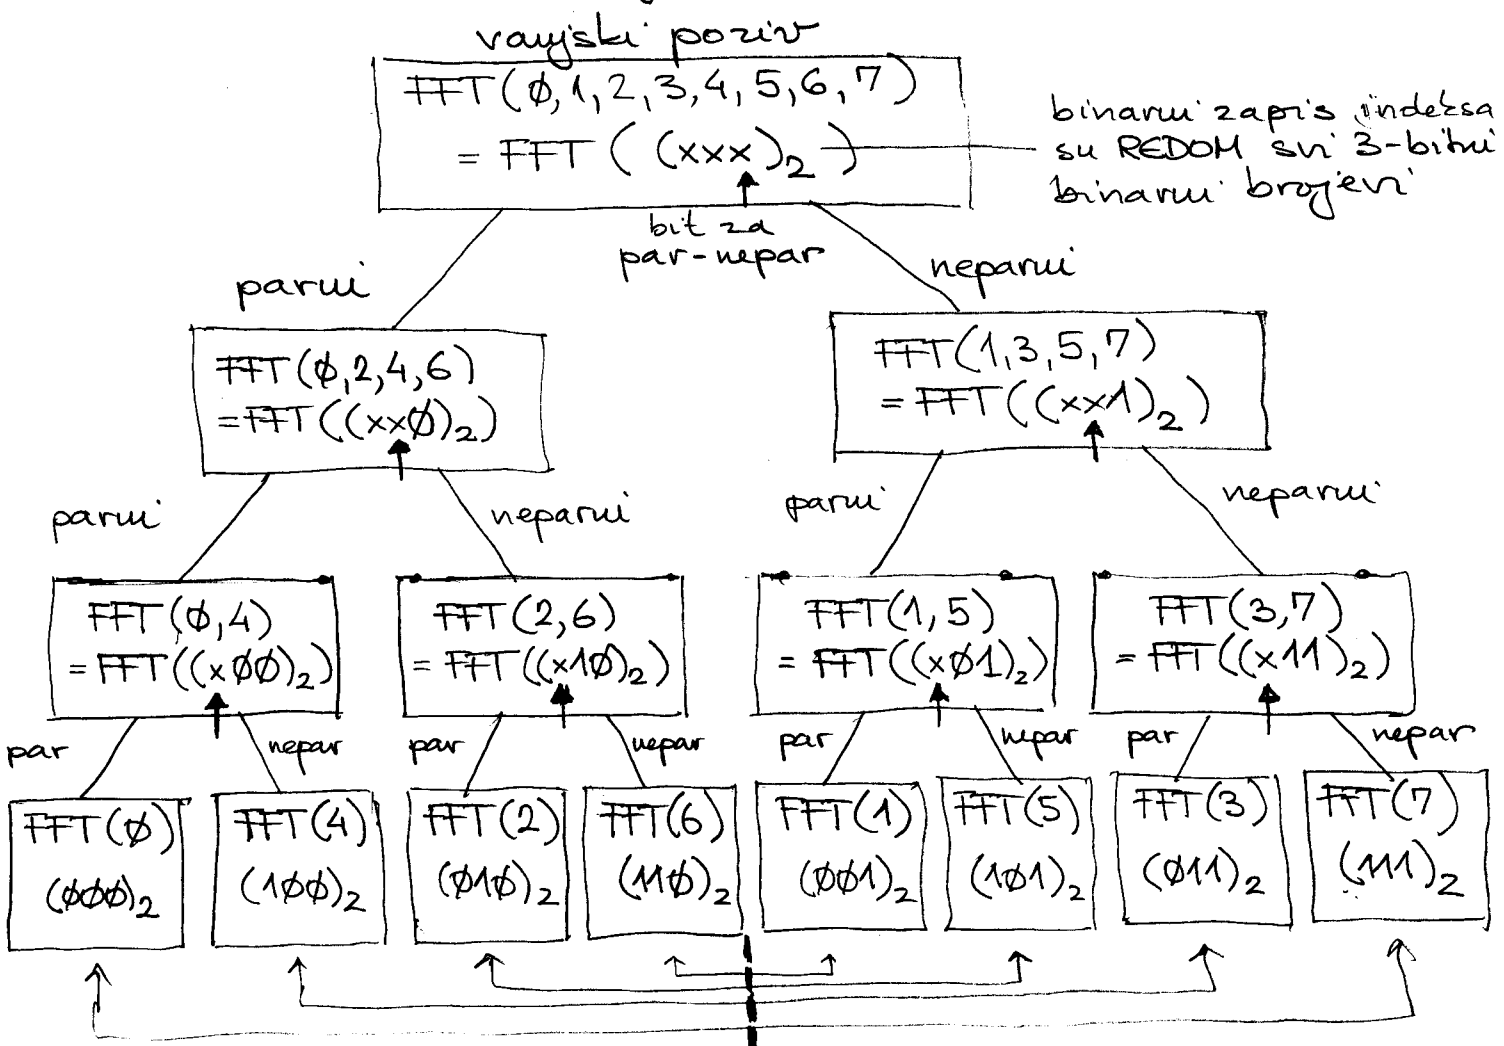 vanjski poziv
FFT(ø,1,2,3,4,5,6,7)
= FFT ( (xxx)₂ )
binarni zapis indeksa
su REDOM svi 3-bitni
binarni brojevi
bit za
par-nepar
parni
neparni
FFT(ø,2,4,6)
=FFT((xxø)₂)
FFT(1,3,5,7)
= FFT((xx1)₂)
parni
neparni
parni
neparni
FFT(ø,4)
= FFT((xøø)₂)
FFT(2,6)
= FFT((x1ø)₂)
FFT(1,5)
= FFT((xø1)₂)
FFT(3,7)
= FFT((x11)₂)
par
nepar
par
nepar
par
nepar
par
nepar
FFT(ø)
(øøø)₂
FFT(4)
(1øø)₂
FFT(2)
(ø1ø)₂
FFT(6)
(11ø)₂
FFT(1)
(øø1)₂
FFT(5)
(1ø1)₂
FFT(3)
(ø11)₂
FFT(7)
(111)₂